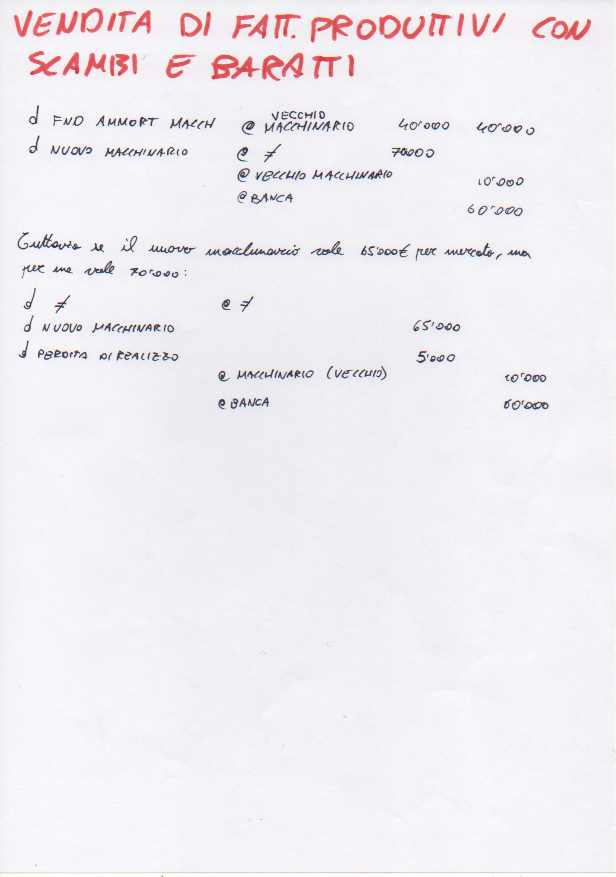 VENDITA DI FATT. PRODUTTIVI CON
SCAMBI E BARATTI
d FND AMMORT MACCH @ VECCHIO MACCHINARIO 40'000 40'000
d NUOVO MACCHINARIO @ ≠ 70000
@ VECCHIO MACCHINARIO 10'000
@ BANCA 60'000
Tuttavia se il nuovo macchinario vale 65'000€ per mercato, ma
per me vale 70'000:
d ≠ @ ≠
d NUOVO MACCHINARIO 65'000
d PERDITA DI REALIZZO 5'000
@ MACCHINARIO (VECCHIO) 10'000
@ BANCA 60'000